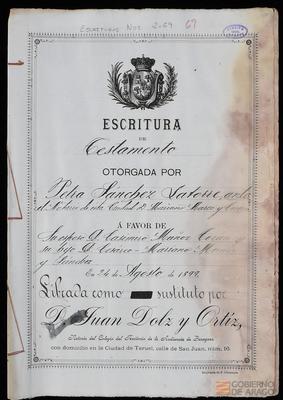 ESCRITURAS NOS. 2-69 67
ESCRITURA
DE
Testamento
OTORGADA POR
Petra Sánchez Latorre, ante
el Notario de esta Ciudad D. Mariano
Á FAVOR DE
Su esposo D. Casimiro Muñoz
su hijo D. Cesareo Mariano
y Sánchez
En 24 de Agosto de 1899.
Librada como sustituto por
D. Juan Dolz y Ortiz,
Notario del Colegio del Territorio de la Audiencia de Zaragoza
con domicilio en la Ciudad de Teruel, calle de San Juan, núm.
GOBIERNO
DE ARAGON